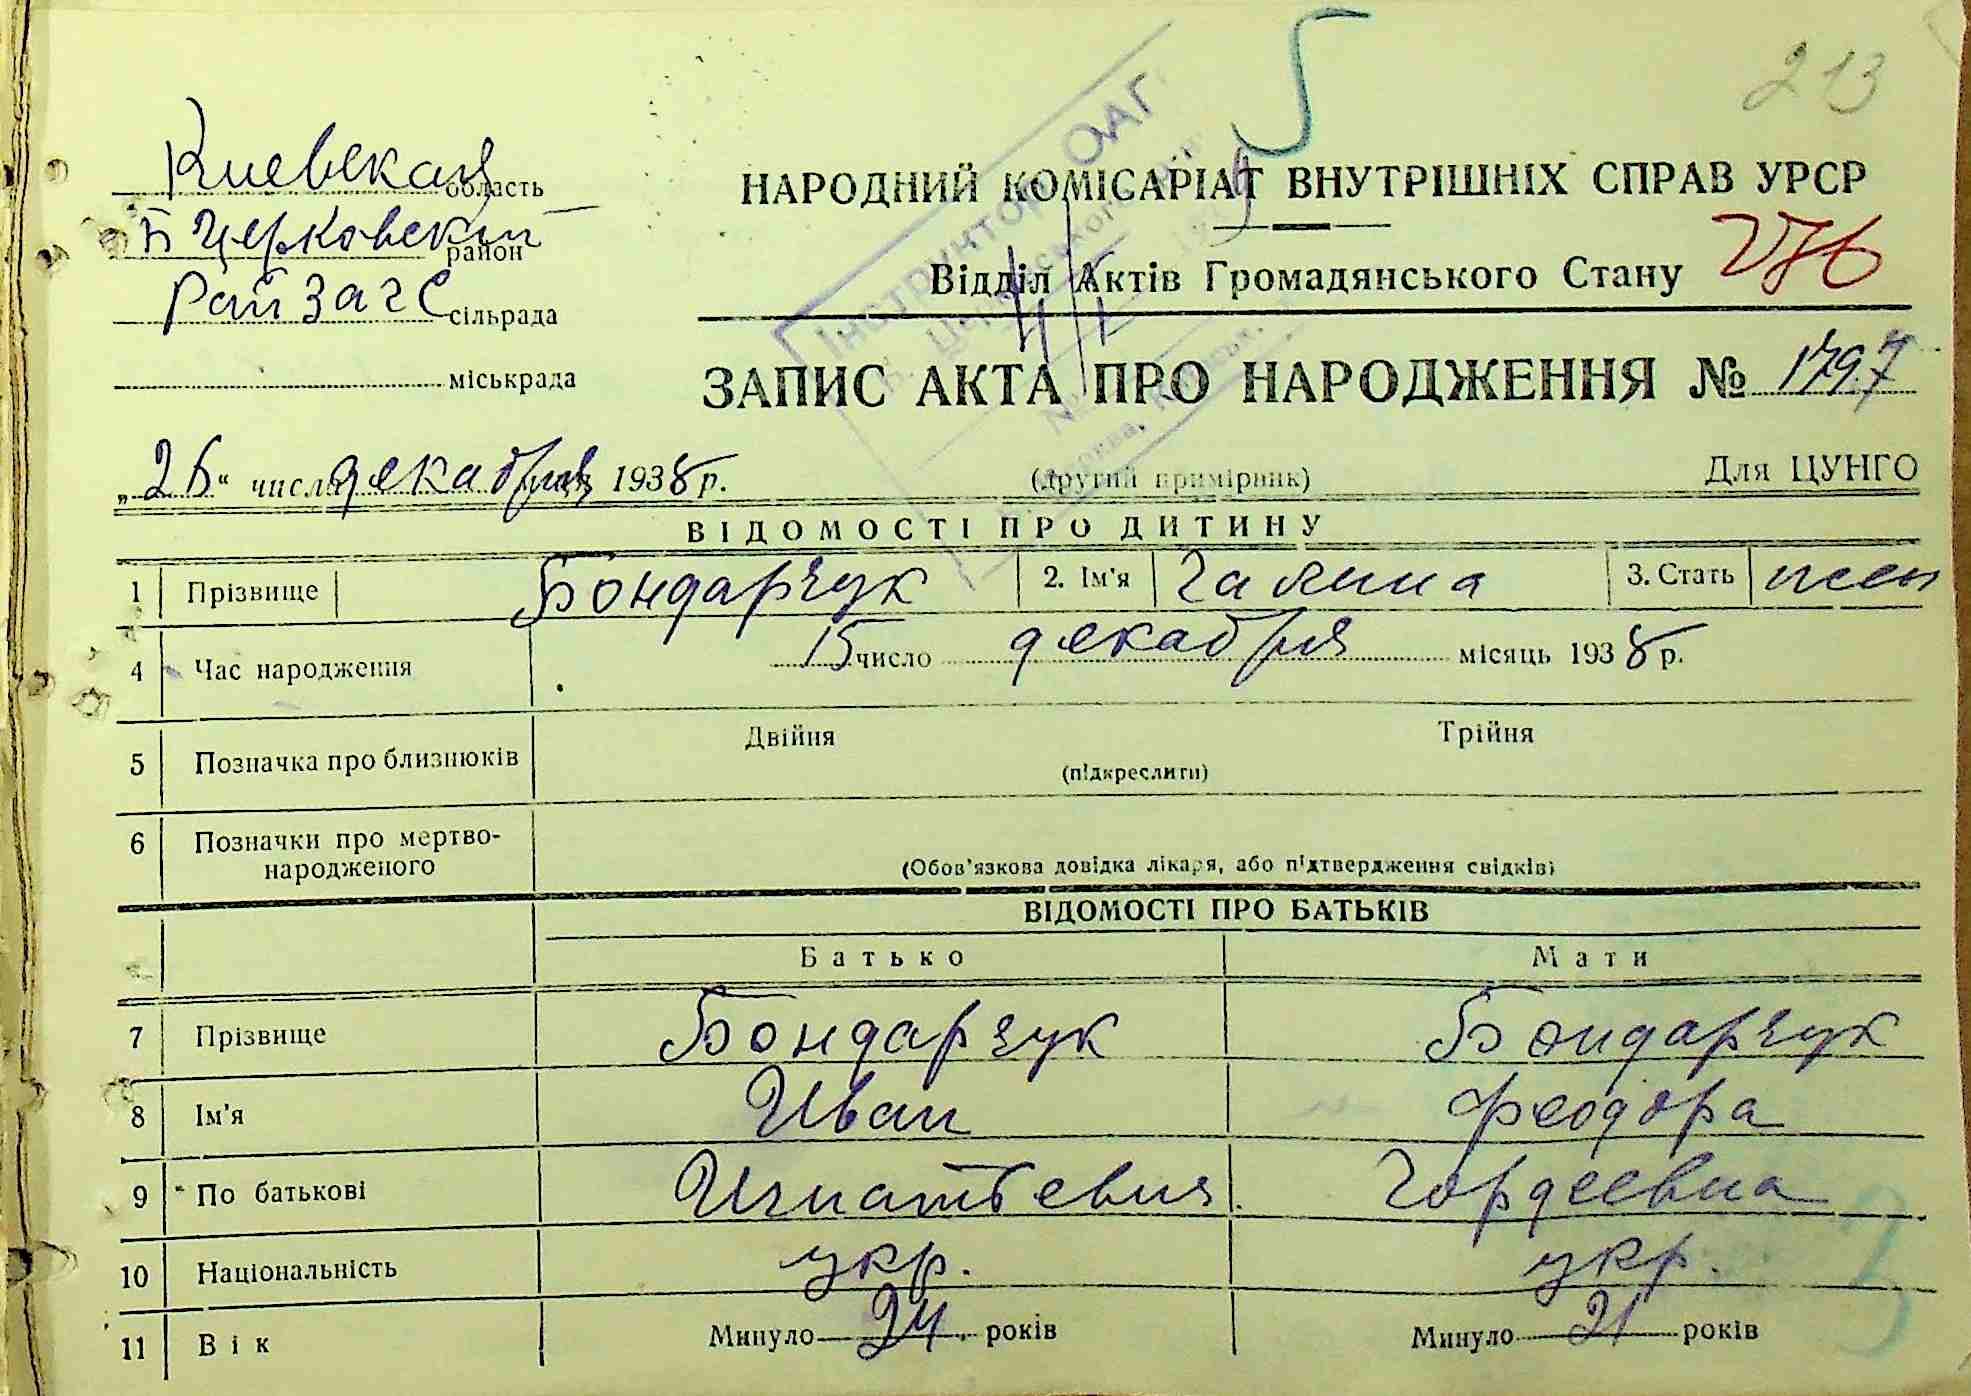 5
213
Киевская область
Б Церковский район
Райзагс сільрада
міськрада
НАРОДНИЙ КОМІСАРІАТ ВНУТРІШНІХ СПРАВ УРСР
Відділ Актів Громадянського Стану
276
ЗАПИС АКТА ПРО НАРОДЖЕННЯ № 1797
Інструктор ОАГ
"26" числа декабря 1938 р.
(другий примірник)
Для ЦУНГО
ВІДОМОСТІ ПРО ДИТИНУ
1 Прізвище Бондарчук 2. Ім'я Галина 3. Стать жен
4 Час народження 15 число декабря місяць 1938 р.
5 Позначка про близнюків Двійня Трійня
(підкреслити)
6 Позначки про мертво-
народженого
(Обов'язкова довідка лікаря, або підтвердження свідків)
ВІДОМОСТІ ПРО БАТЬКІВ
Батько Мати
7 Прізвище Бондарчук Бондарчук
8 Ім'я Иван Феодора
9 По батькові Игнатьевич Гордеевна
10 Національність укр. укр.
11 Вік Минуло 24 років Минуло 21 років